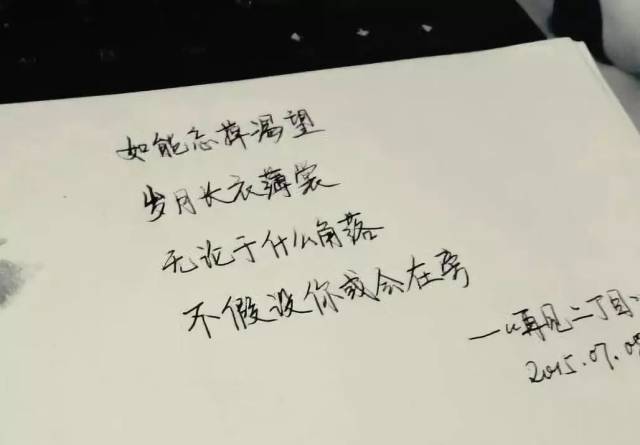 如能忘掉渴望
岁月长衣薄裳
无论于什么角落
不假设你或会在旁
——《再见二丁目》
2015.07.0